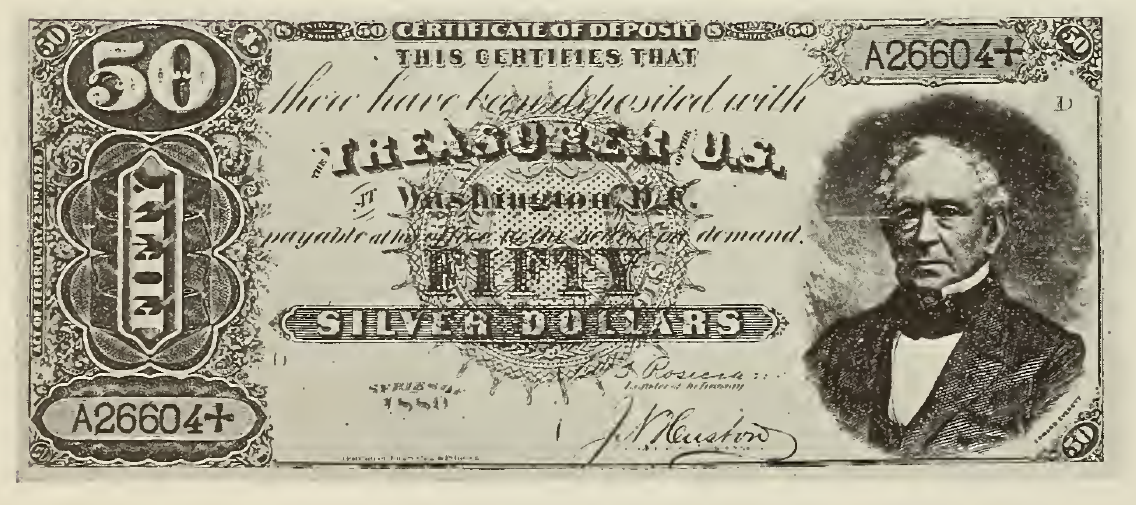 50
50
CERTIFICATE OF DEPOSIT
50
THIS CERTIFIES THAT
A26604
50
there have been deposited with
D
THE TREASURER OF THE U.S.
AT Washington, D.C.
payable at his office to the bearer on demand.
FIFTY
FIFTY
SILVER DOLLARS
D
SERIES OF
1880
Rosecrans
Register of the Treasury
A26604
J.N. Huston
EDWARD EVERETT
50